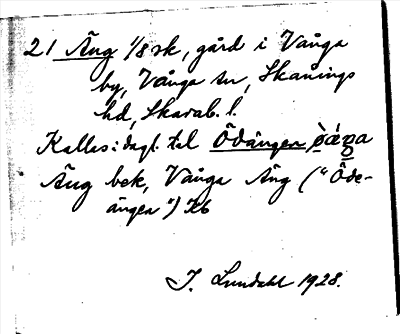 21 Äng 1/8 sk, gård i Vånga
by, Vånga sn, Skånings
hd, Skarab. l.
Kallas i dagl. tal Ödängen,
Äng bek, Vånga Äng ("Öde-
ängen") Kb
J. Lundahl 1928.